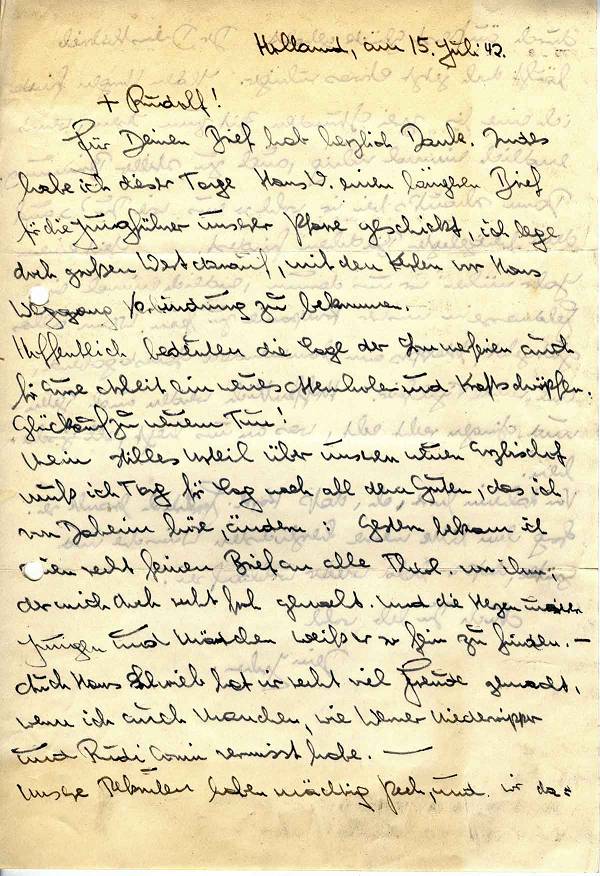 Holland, am 15. Juli 42.
+ Rudolf!
Für Deinen Brief hab herzlich Dank. Indes
habe ich dieser Tage Hans W. einen längeren Brief
für die Jungführer unserer Pfarre geschickt, ich lege
doch großen Wert darauf, mit den Kerlen vor Hans
Weggang Verbindung zu bekommen.
Hoffentlich bedeuten die Tage der Sommerferien auch
für Eure Arbeit ein neues Atemholen und Kraftschöpfen.
Glückauf zu neuem Tun!
Mein stilles Urteil über unseren neuen Erzbischof
muß ich Tag für Tag nach all dem Guten, das ich
von Daheim höre, ändern: Gestern bekam ich
einen recht feinen Brief an alle Theol. von ihm,
der mich doch recht froh gemacht. Und die Herzen unserer
Jungen und Mädchen weiß er so fein zu finden. –
Auch Hans Schrieb hat mir recht viel Freude gemacht,
wenn ich auch Manchen, wie Werner Niederwipper
und Rudi vermisst habe. —
Unsere Rekruten haben mächtig Pech, und wir da=